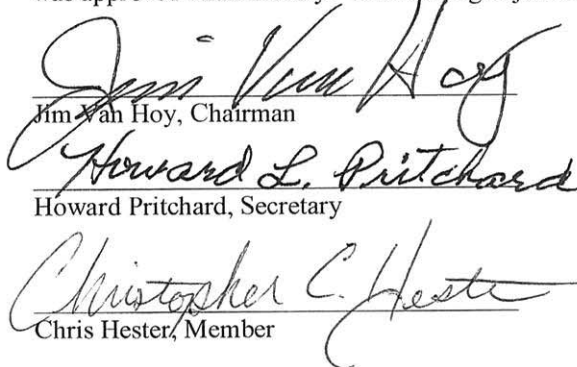 Jim Van Hoy
Jim Van Hoy, Chairman
Howard L. Pritchard
Howard Pritchard, Secretary
Christopher C. Heste
Chris Hester, Member